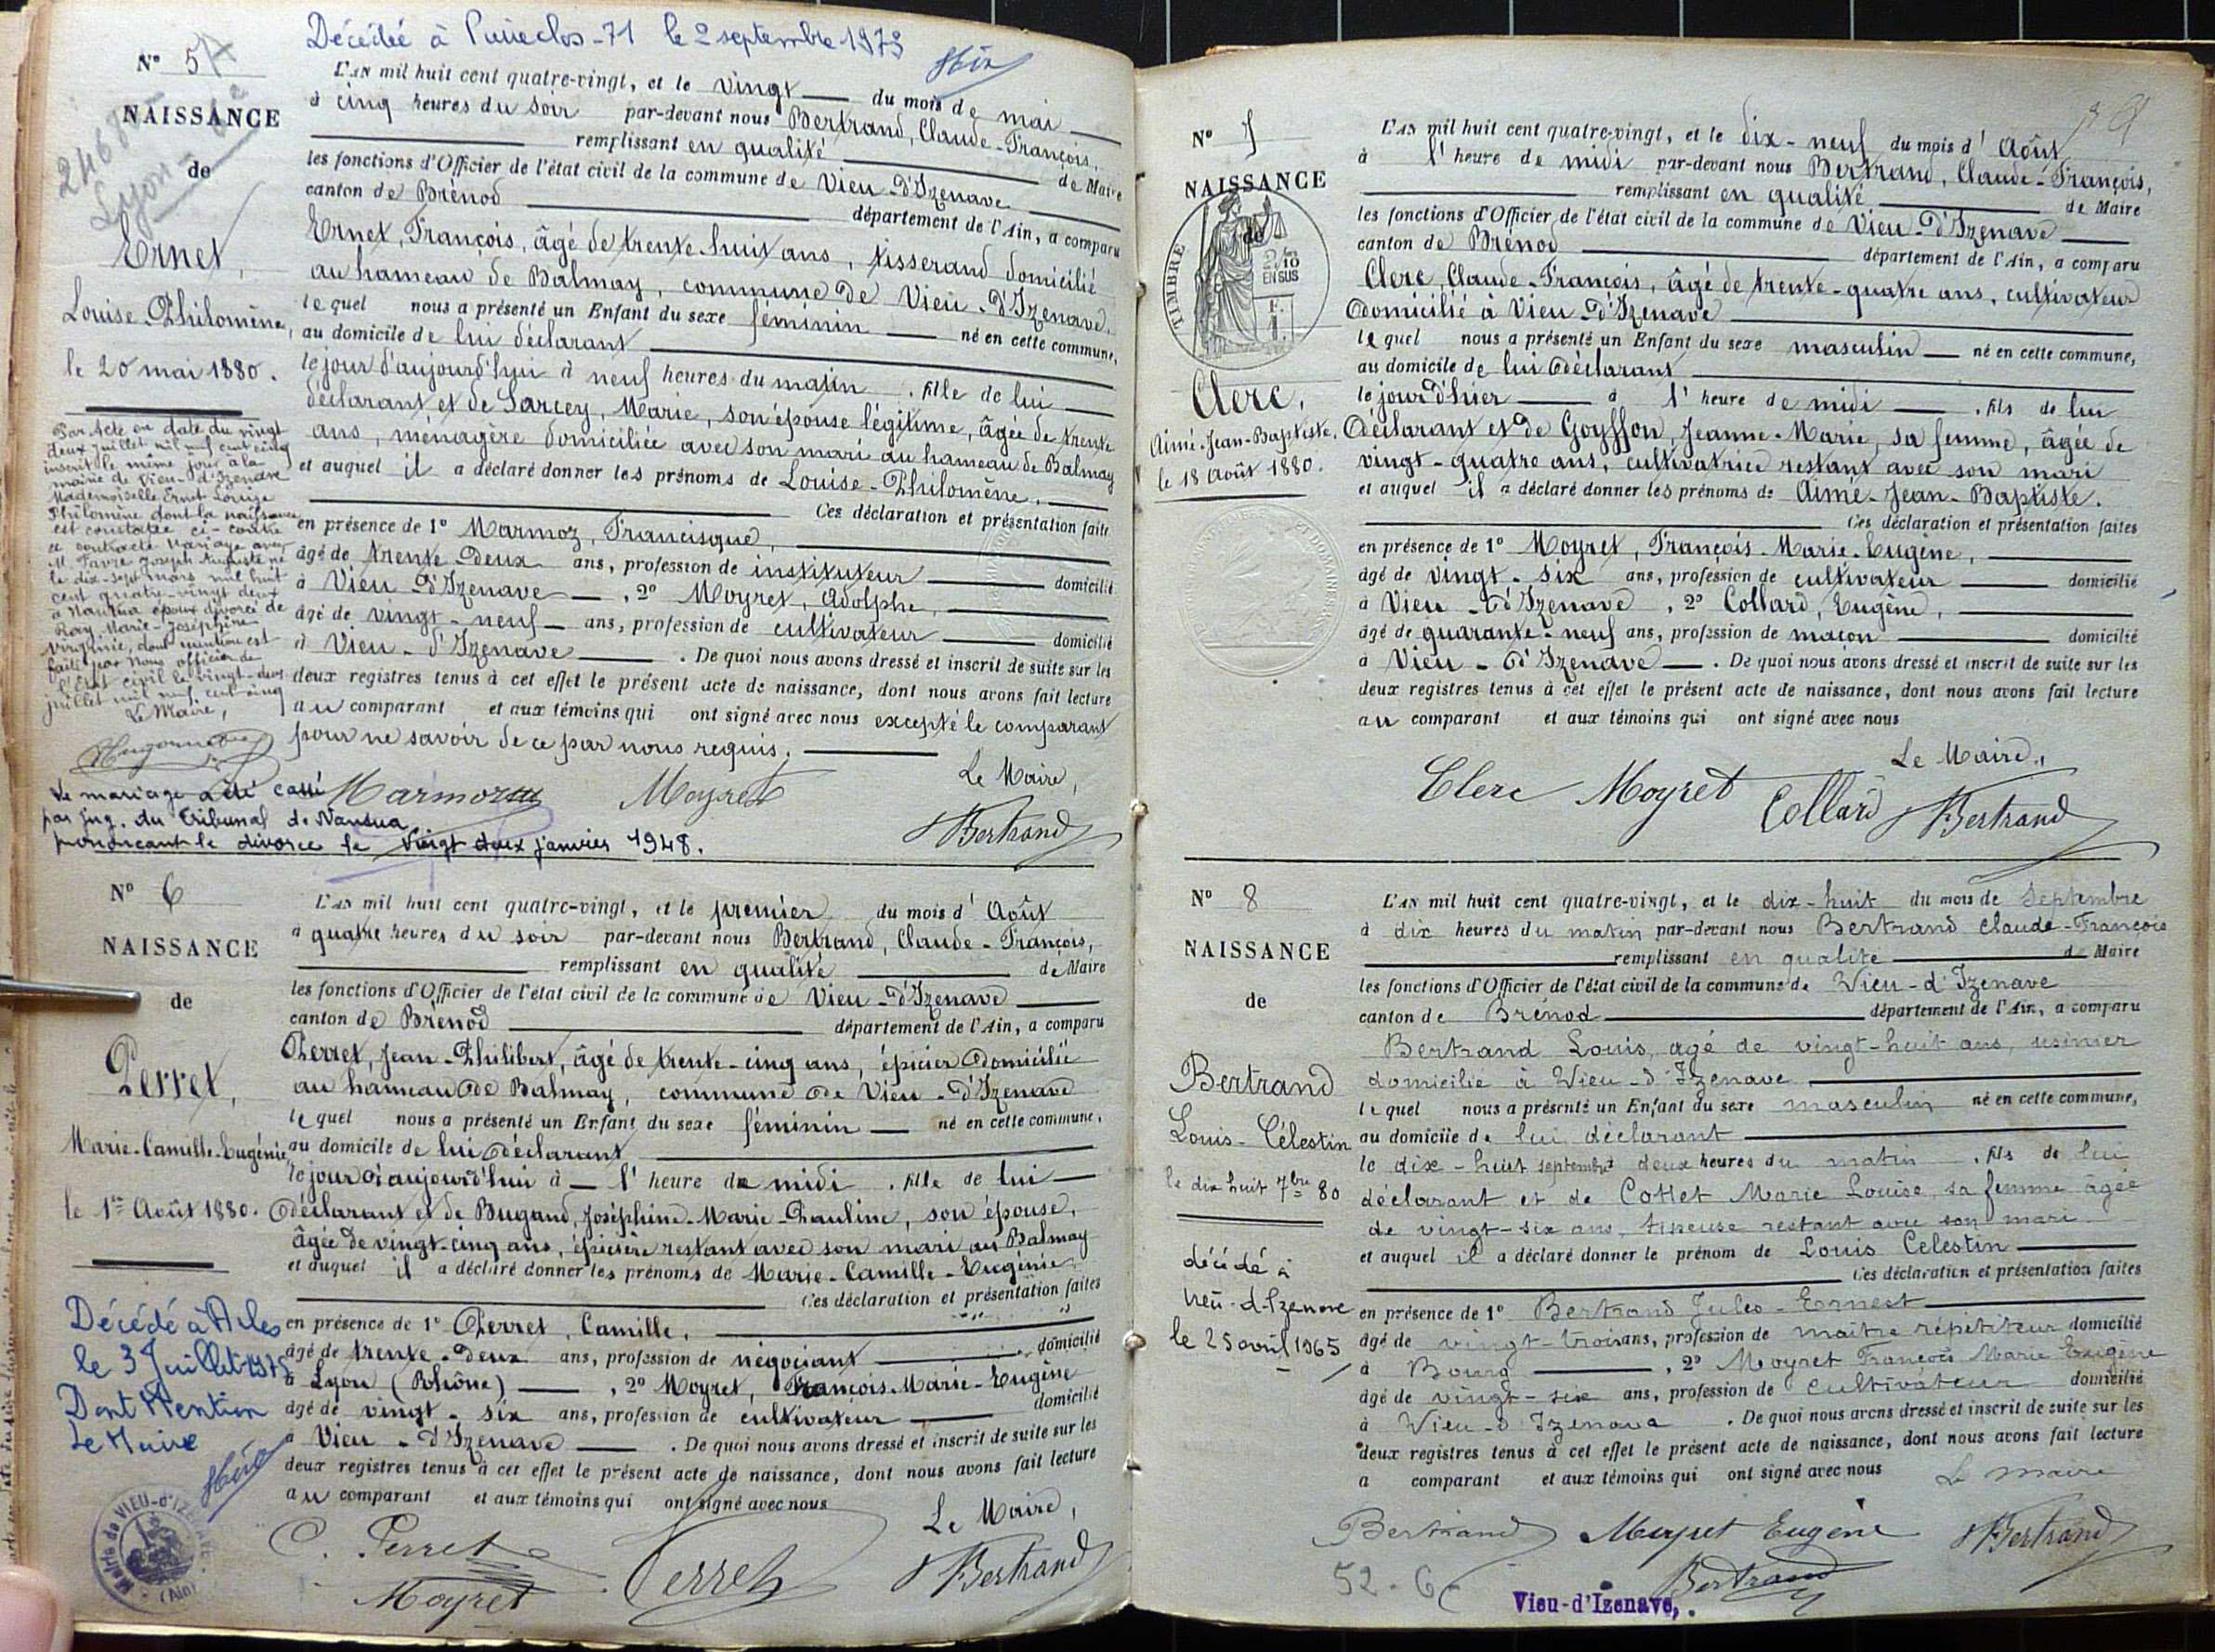 Décédée à le 2 septembre 1973
N° 5
NAISSANCE
de
Lyon
Ernet,
Louise-Philomène,
le 20 mai 1880.
L'AN mil huit cent quatre-vingt, et le vingt du mois de mai
à cinq heures du soir par-devant nous Bertrand, Claude-François,
remplissant en qualité de Maire
les fonctions d'Officier de l'état civil de la commune de Vieu-d'Izenave
canton de Brénod département de l'Ain, a comparu
Ernet, François, âgé de trente-huit ans, tisserand domicilié
au hameau de Balmay, commune de Vieu-d'Izenave.
lequel nous a présenté un Enfant du sexe féminin né en cette commune,
au domicile de lui déclarant
le jour d'aujourd'hui à neuf heures du matin, fille de lui
déclarant et de Sarcey, Marie, son épouse légitime, âgée de trente
ans, ménagère domiciliée avec son mari au hameau de Balmay
et auquel il a déclaré donner les prénoms de Louise-Philomène.
Ces déclaration et présentation faites
en présence de 1° Marmoz, Francisque,
âgé de trente-deux ans, profession de instituteur domicilié
à Vieu-d'Izenave, 2° Moyret, Adolphe,
âgé de vingt-neuf ans, profession de cultivateur domicilié
à Vieu-d'Izenave. De quoi nous avons dressé et inscrit de suite sur les
deux registres tenus à cet effet le présent acte de naissance, dont nous avons fait lecture
au comparant et aux témoins qui ont signé avec nous excepté le comparant
pour ne savoir de ce par nous requis.
Le Maire,
Marmoz Moyret Bertrand
Par acte en date du vingt
deux juillet mil neuf cent cinq
inscrit le même jour à la
mairie de Vieu-d'Izenave
Mademoiselle Ernet Louise
Philomène dont la naissance
est constatée ci-contre
a contracté mariage avec
M. Favre Joseph Auguste né
le dix-sept mars mil huit
cent quatre-vingt deux
à Nantua époux divorcé de
Ray Marie-Joséphine
Virginie, dont mention est
faite par Nous officier de
l'Etat civil le vingt-deux
juillet mil neuf cent cinq
Le Maire,
Le mariage a été cassé
par jug. du Tribunal de Nantua
prononçant le divorce le Vingt deux janvier 1948.
N° 6
NAISSANCE
de
Perret,
Marie-Camille-Eugénie,
le 1er Août 1880.
L'AN mil huit cent quatre-vingt, et le premier du mois d'Août
à quatre heures du soir par-devant nous Bertrand, Claude-François,
remplissant en qualité de Maire
les fonctions d'Officier de l'état civil de la commune de Vieu-d'Izenave
canton de Brénod département de l'Ain, a comparu
Perret, Jean-Philibert, âgé de trente-cinq ans, épicier domicilié
au hameau de Balmay, commune de Vieu-d'Izenave
lequel nous a présenté un Enfant du sexe féminin né en cette commune,
au domicile de lui déclarant
le jour d'aujourd'hui à l'heure de midi, fille de lui
déclarant et de Bugand, Joséphine-Marie-Pauline, son épouse,
âgée de vingt-cinq ans, épicière restant avec son mari au Balmay
et auquel il a déclaré donner les prénoms de Marie-Camille-Eugénie.
Ces déclaration et présentation faites
en présence de 1° Perret, Camille,
âgé de trente-deux ans, profession de négociant domicilié
à Lyon (Rhône), 2° Moyret, François-Marie-Eugène
âgé de vingt-six ans, profession de cultivateur domicilié
à Vieu-d'Izenave. De quoi nous avons dressé et inscrit de suite sur les
deux registres tenus à cet effet le présent acte de naissance, dont nous avons fait lecture
au comparant et aux témoins qui ont signé avec nous
Le Maire,
C. Perret Perret Bertrand
Moyret
Décédé à Arles
le 3 Juillet
Dont Mention
Le Maire
Mairie de VIEU-d'IZENAVE
(Ain)
N° 7
NAISSANCE
de
TIMBRE
2/10
EN SUS
Clerc,
Aimé-Jean-Baptiste.
le 18 Août 1880.
L'AN mil huit cent quatre-vingt, et le dix-neuf du mois d'Août
à l'heure de midi par-devant nous Bertrand, Claude-François,
remplissant en qualité de Maire
les fonctions d'Officier de l'état civil de la commune de Vieu-d'Izenave
canton de Brénod département de l'Ain, a comparu
Clerc, Claude-François, âgé de trente-quatre ans, cultivateur
domicilié à Vieu-d'Izenave
lequel nous a présenté un Enfant du sexe masculin né en cette commune,
au domicile de lui déclarant
le jour d'hier à l'heure de midi, fils de lui
déclarant et de Goyffon, Jeanne-Marie, sa femme, âgée de
vingt-quatre ans, cultivatrice restant avec son mari
et auquel il a déclaré donner les prénoms de Aimé-Jean-Baptiste.
Ces déclaration et présentation faites
en présence de 1° Moyret, François-Marie-Eugène,
âgé de vingt-six ans, profession de cultivateur domicilié
à Vieu-d'Izenave, 2° Collard, Eugène,
âgé de quarante-neuf ans, profession de maçon domicilié
à Vieu-d'Izenave. De quoi nous avons dressé et inscrit de suite sur les
deux registres tenus à cet effet le présent acte de naissance, dont nous avons fait lecture
au comparant et aux témoins qui ont signé avec nous
Le Maire,
Clerc Moyret Collard Bertrand
N° 8
NAISSANCE
de
Bertrand
Louis-Célestin
le dix huit 7bre 80
décédé à
Vieu-d'Izenave
le 25 avril 1965
L'AN mil huit cent quatre-vingt, et le dix-huit du mois de Septembre
à dix heures du matin par-devant nous Bertrand Claude-François
remplissant en qualité de Maire
les fonctions d'Officier de l'état civil de la commune de Vieu-d'Izenave
canton de Brénod département de l'Ain, a comparu
Bertrand Louis, agé de vingt-huit ans, usinier
domicilié à Vieu-d'Izenave
lequel nous a présenté un Enfant du sexe masculin né en cette commune,
au domicile de lui déclarant
le dix-huit septembre deux heures du matin, fils de lui
déclarant et de Cottet Marie Louise, sa femme âgée
de vingt-six ans, restant avec son mari
et auquel il a déclaré donner le prénom de Louis Celestin
Ces déclaration et présentation faites
en présence de 1° Bertrand Jules-Ernest
âgé de vingt-trois ans, profession de maître répétiteur domicilié
à Bourg, 2° Moyret François Marie Eugène
âgé de vingt-six ans, profession de Cultivateur domicilié
à Vieu-d'Izenave. De quoi nous avons dressé et inscrit de suite sur les
deux registres tenus à cet effet le présent acte de naissance, dont nous avons fait lecture
a comparant et aux témoins qui ont signé avec nous
Le maire
Bertrand Moyret Eugène Bertrand
Bertrand
Vieu-d'Izenave,